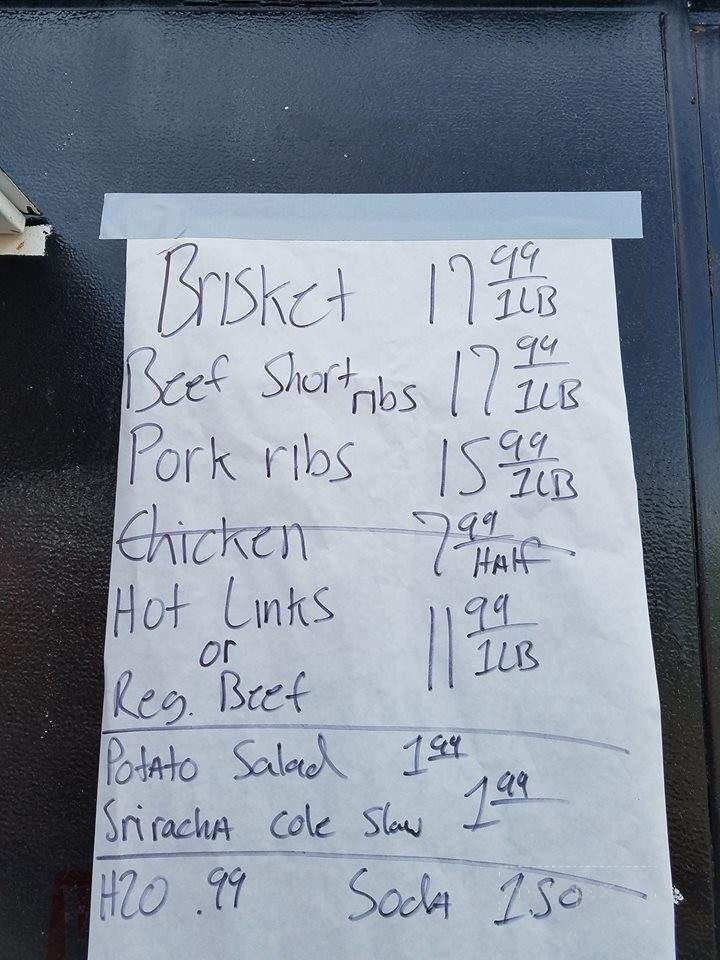 Brisket 17 99/1LB
Beef Short ribs 17 99/1LB
Pork ribs 15 99/1LB
Chicken 7 99/HAlf
Hot Links
or
Reg. Beef 11 99/1LB
PotAto Salad 1 99
SrirachA Cole Slaw 1 99
H20 .99 SodA 1.50